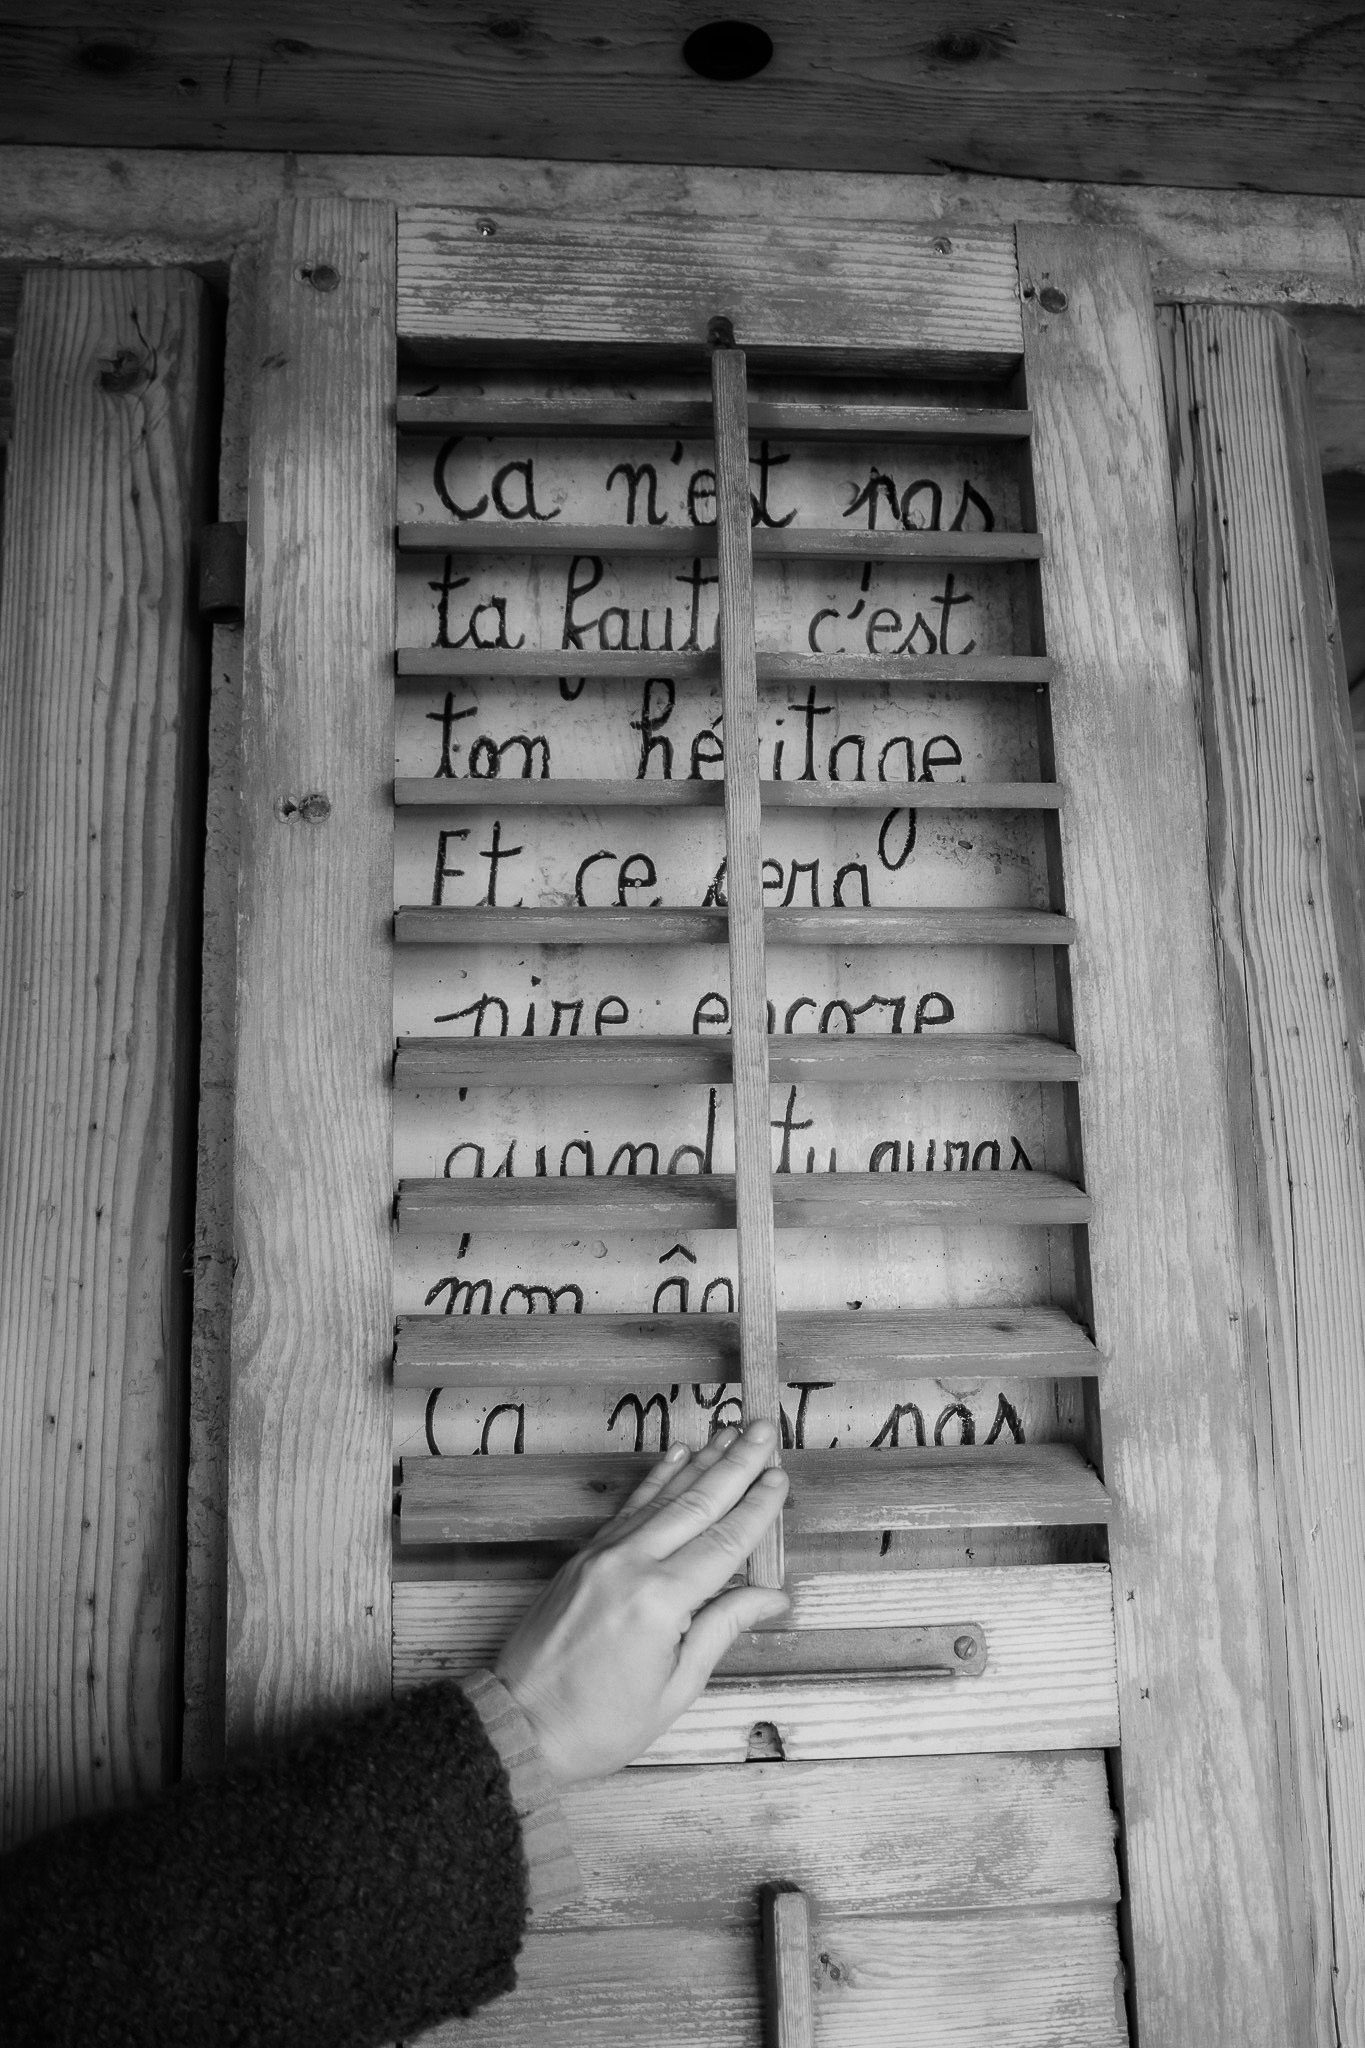 Ça n'est pas
ta faute c'est
ton héritage
Et ce sera
pire encore
quand tu auras
mon âge
Ça n'est pas